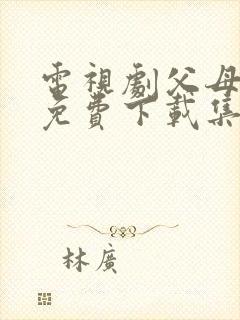 電視劇父母
免費下載集
林廣